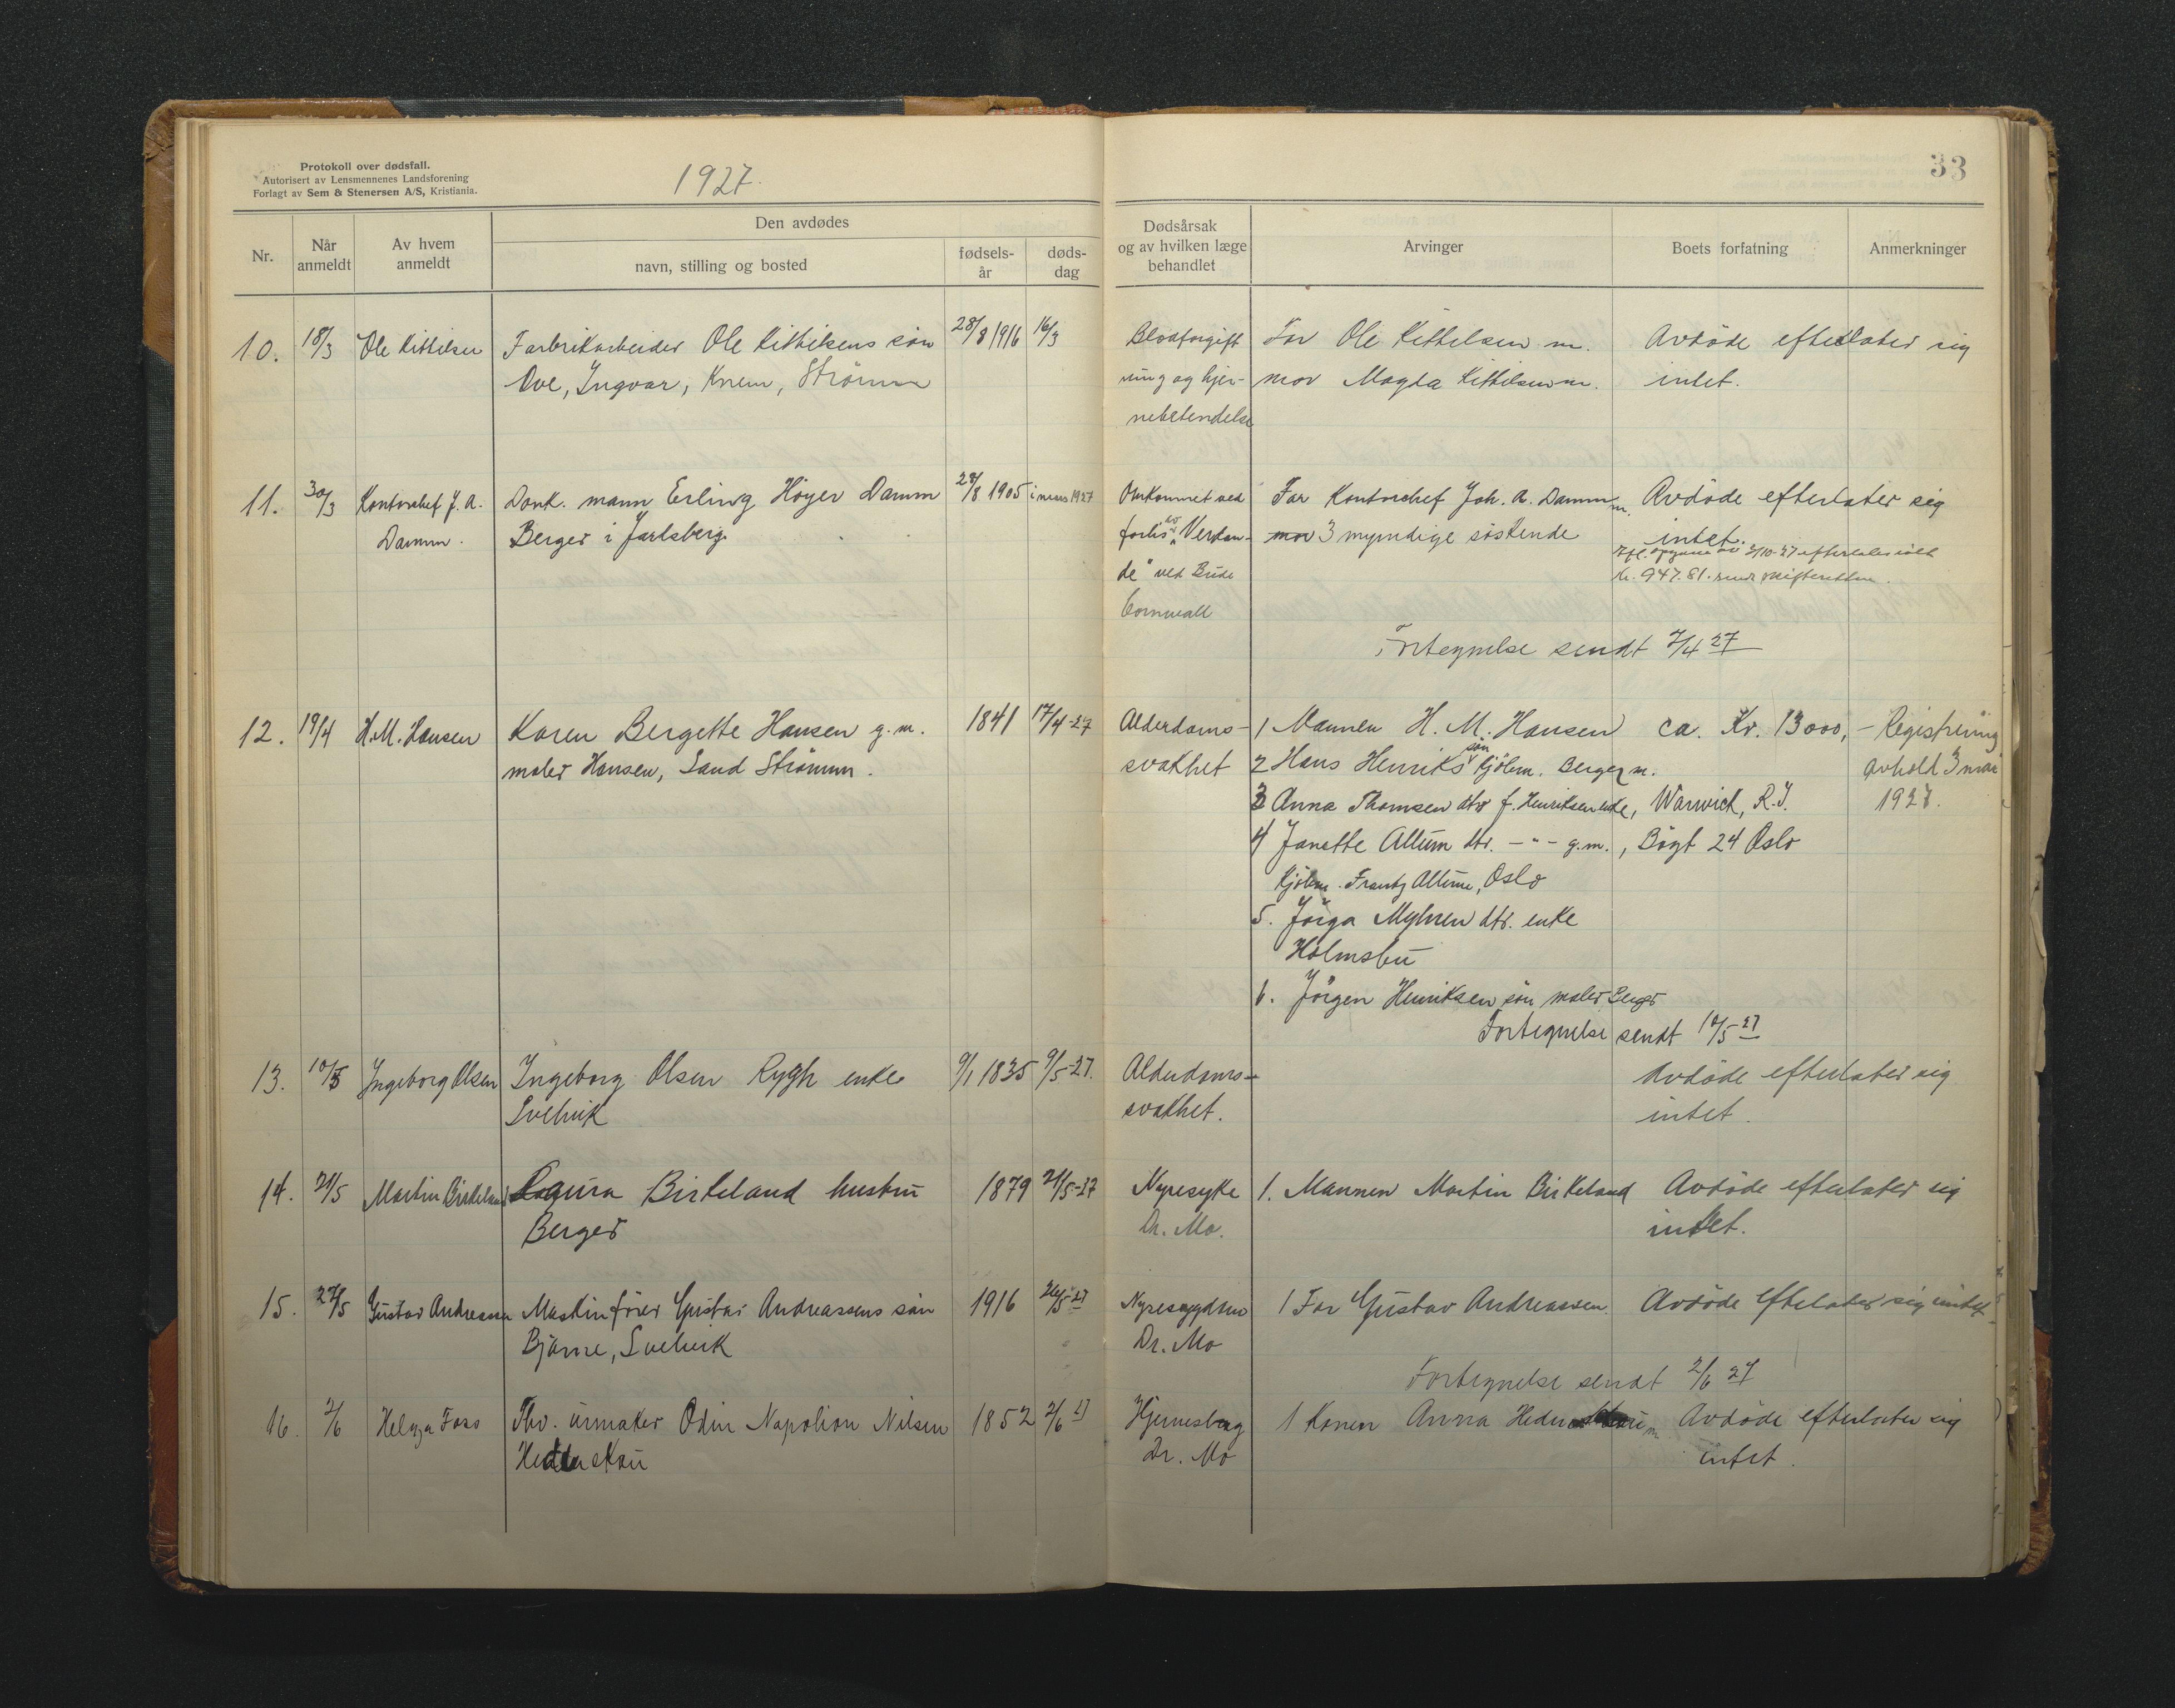 Protokoll over dødsfall.
Autorisert av Lensmennenes Landsforening
Forlagt av Sem & Stenersen A/S, Kristiania.
1927.
33
Nr.
Når anmeldt
Av hvem anmeldt
Den avdødes
navn, stilling og bosted
fødsels-år
døds-dag
Dødsårsak og av hvilken læge behandlet
Arvinger
Boets forfatning
Anmerkninger
10. 18/3 Ole Kittilsen Fabrikarbeider Ole Kittilsens søn 28/8 1916 16/3 Blodforgift Far Ole Kittelsen m. Avdöde efterlater sig
Ove, Ingvar, Knem, Strömm ning og hjer- mor Magda Kittilsen m. intet.
nebetendelse
11. 30/3 Kontorchef J. A. Donk. mann Erling Höyer Damm 29/8 1905 i mars 1927 Omkommet ved Far Kontorchef Joh. A. Damm m. Avdöde efterlater sig
Damm. Berger i Jarlsberg. forlis av "Verdan- mor 3 myndige söskende intet.
2/10-27 efterlates
de" ved Bude kr. 947.81. skifteretten.
Cornwall
Fortegnelse sendt 7/4 27
12. 19/4 H.M. Hansen Karen Bergette Hansen g.m. 1841 17/4-27 Alderdoms- 1 Mannen H. M. Hansen ca. Kr. 13000,- Registrering
maler Hansen, Sand Strömm. svakhet 2 Hans Henriks sön Kjölm. Berger m. avhold 3 mai
3 Anna Thomsen dtr f. Henriksen enke, Warwick, R.I. 1927.
4 Janette Alturn dtr. -"- g.m., Bögt 24 Oslo
Kjölm. Frantz Alturn, Oslo
5. Jörga Myhren dtr. enke
Holmsbu
6. Jörgen Henriksen sön maler Berger
Fortegnelse sendt 10/5 27
13. 10/5 Ingeborg Olsen Ingeborg Olsen Rygh enke 9/1 1835 9/5-27. Alderdoms- Avdöde efterlater sig
Svelvik svakhet. intet.
14. 21/5 Martin Birkeland Laura Birkeland hustru 1879 21/5-27 Nyresyke 1. Mannen Martin Birkeland Avdöde efterlater sig
Berger Dr. Mo. intet.
15. 27/5 Gustav Andreassen Maskinförer Gustav Andreassens sön 1916 26/5 27 Nyresygdom 1 Far Gustav Andreassen. Avdöde efterlater sig intet.
Bjarne, Svelvik Dr. Mo
Fortegnelse sendt 2/6 27
16. 2/6 Helga Foss Fhv. urmaker Odin Napolion Nilsen 1852 2/6 27 Hjerneslag 1 Konen Anna Avdöde efterlater sig
Dr. Mo intet.